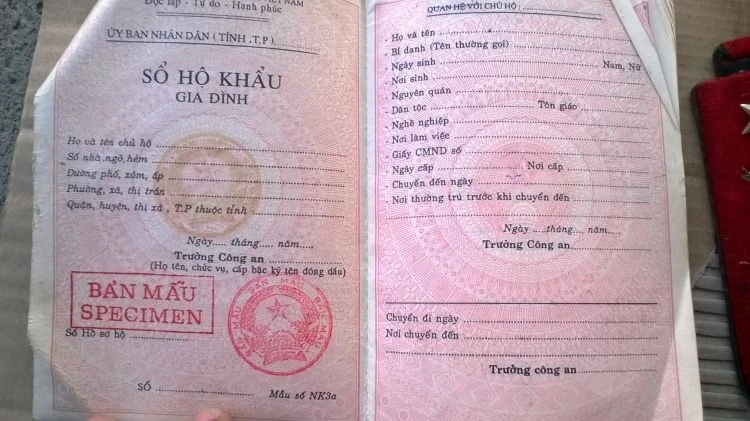 NAM
Độc lập - Tự do - Hạnh phúc
ỦY BAN NHÂN DÂN (TỈNH ,T.P)
SỔ HỘ KHẨU
GIA ĐÌNH
Họ và tên chủ hộ
Số nhà ,ngõ, hẻm
Đường phố, xóm, ấp
Phường, xã, thị trấn
Quận, huyện, thị xã , T.P thuộc tỉnh
Ngày..... tháng..... năm.....
Trưởng Công an
(Họ tên, chức vụ, cấp bậc ký tên đóng dấu)
BẢN MẪU
SPECIMEN
BẢN MẪU BẢN MẪU
Số Hồ sơ hộ
SỐ
Mẫu số NK3a
QUAN HỆ VỚI CHỦ HỘ :
- Họ và tên
- Bí danh (Tên thường gọi)
- Ngày sinh Nam, Nữ
- Nơi sinh
- Nguyên quán
- Dân tộc Tôn giáo
- Nghề nghiệp
- Nơi làm việc
- Giấy CMND số
Ngày cấp Nơi cấp
- Chuyển đến ngày
- Nơi thường trú trước khi chuyển đến
Ngày ....tháng.... năm.....
Trưởng Công an
Chuyển đi ngày
Nơi chuyển đến
Trưởng công an